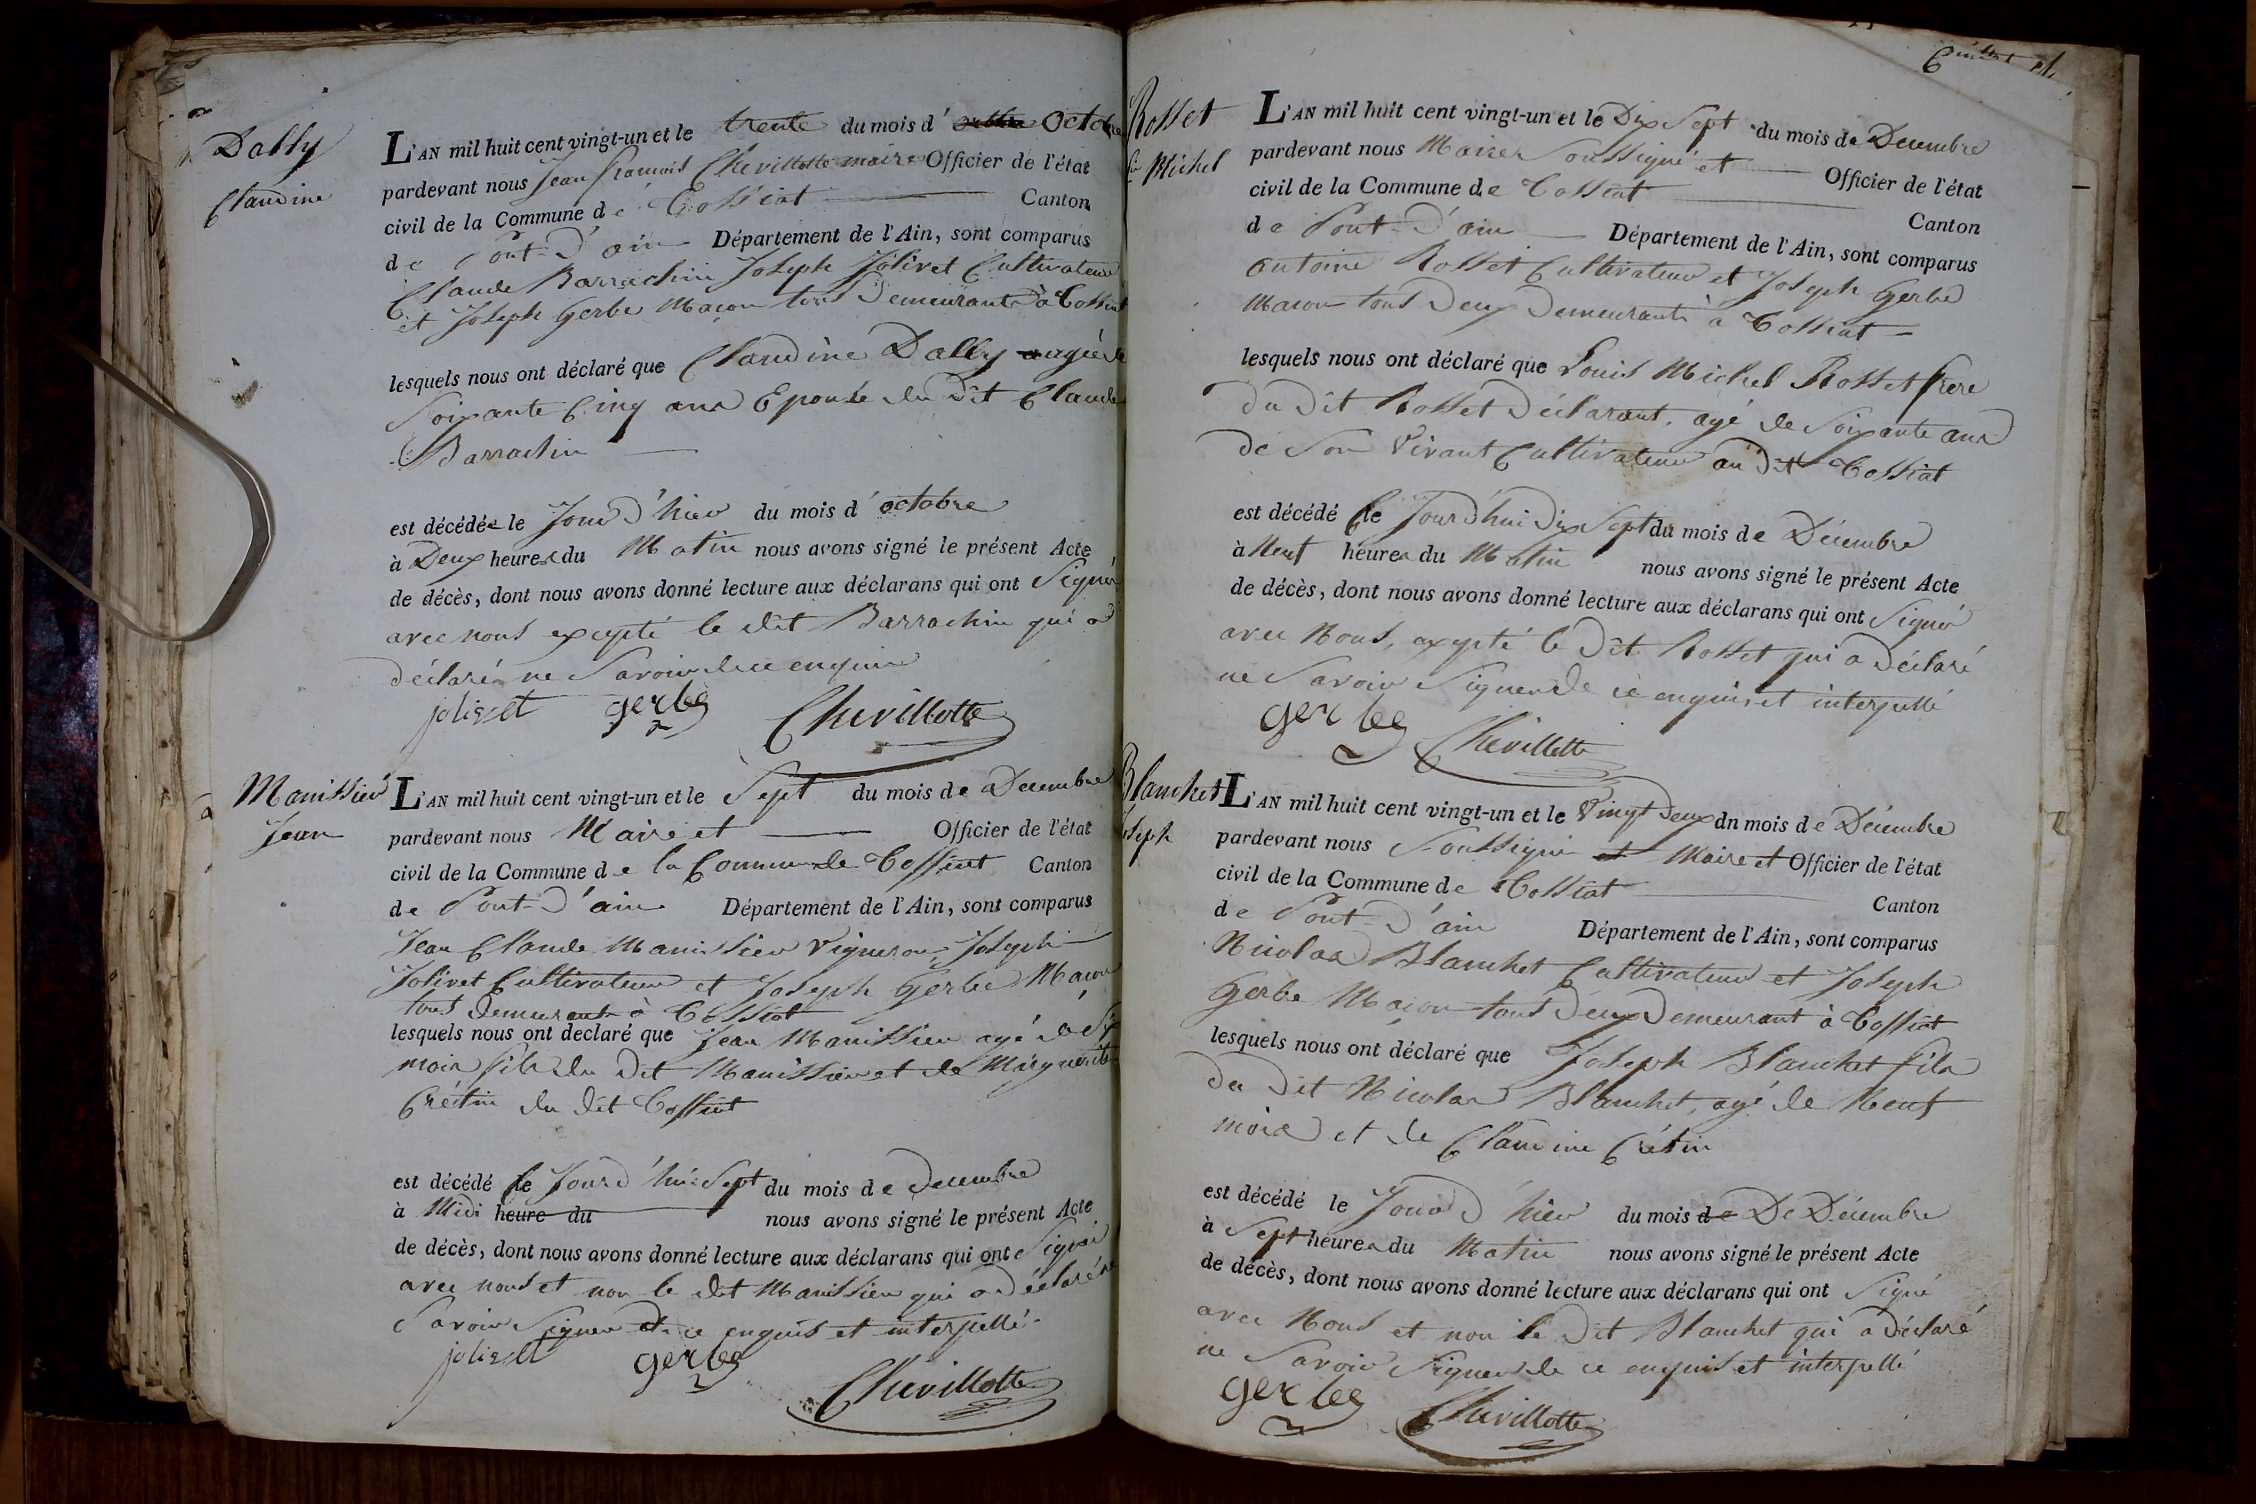 Dally
Claudine
L'AN mil huit cent vingt-un et le trente du mois d' Octobre
pardevant nous Jean françois Chevillotte maire Officier de l'état
civil de la Commune de Tossiat Canton
de Pont-D'ain Département de l'Ain, sont comparus
Claude Barrachin Joseph Jolivet Cultivateur
et Joseph Gerbe Maçon tous Demeurant à Tossiat
lesquels nous ont déclaré que Claudine Dally agée de
Soixante Cinq ans Epouse du Dit Claude
Barrachin
est décédée le Jour D'hier du mois d'octobre
à Deux heures du Matin nous avons signé le présent Acte
de décès, dont nous avons donné lecture aux déclarans qui ont Signé
avec nous excepté le dit Barrachin qui a
déclaré ne Savoir de ce enquis
jolivet gerbe Chevillotte
Manissier
Jean
L'AN mil huit cent vingt-un et le Sept du mois de Decembre
pardevant nous Maire et Officier de l'état
civil de la Commune de la Commune de Tossiat Canton
de Pont-D'ain Département de l'Ain, sont comparus
Jean Claude Manissier Vigneron, Joseph
Jolivet Cultivateur et Joseph Gerbe Maçon
tous demeurant à Tossiat
lesquels nous ont declaré que Jean Manissier agé de Six
mois fils du Dit Manissier et de Marguerite
Crétin du dit Tossiat
est décédé le Jour D'hui Sept du mois de Decembre
à Midi heure du nous avons signé le présent Acte
de décès, dont nous avons donné lecture aux déclarans qui ont Signé
avec nous et non le dit Manissier qui a déclaré ne
Savoir Signer de ce enquis et interpellé
jolivet gerbe
Chevillotte
Rosset
Michel
L'AN mil huit cent vingt-un et le Dix Sept du mois de Decembre
pardevant nous Maire Soussigné et Officier de l'état
civil de la Commune de Tossiat Canton
de Pont-D'ain Département de l'Ain, sont comparus
antoine Rosset Cultivateur et Joseph Gerbe
Macon tous Deux Demeurant à Tossiat
lesquels nous ont déclaré que Louis Michel Rosset frere
du Dit Rosset Déclarant, agé de Soixante ans
de Son Vivant Cultivateur au Dit Tossiat
est décédé le Jourd'hui Dix Sept du mois de Décembre
à Neuf heures du Matin nous avons signé le présent Acte
de décès, dont nous avons donné lecture aux déclarans qui ont Signé
avec Nous, excepté le Dit Rosset qui a déclaré
ne Savoir Signer de ce enquis et interpellé
gerbe Chevillotte
Blanchet
Joseph
L'AN mil huit cent vingt-un et le Vingt Deux du mois de Décembre
pardevant nous Soussigné et Maire et Officier de l'état
civil de la Commune de Tossiat Canton
de Pont-D'ain Département de l'Ain, sont comparus
Nicolas Blanchet Cultivateur et Joseph
Gerbe Maçon tous Deux Demeurant à Tossiat
lesquels nous ont déclaré que Joseph Blanchet fils
du Dit Nicolas Blanchet, agé de Neuf
mois et de Claudine Crétin
est décédé le Jour D'hier du mois de De Décembre
à Sept heures du Matin nous avons signé le présent Acte
de décès, dont nous avons donné lecture aux déclarans qui ont Signé
avec Nous et non le Dit Blanchet qui a déclaré
ne Savoir Signer de ce enquis et interpellé
gerbe Chevillotte